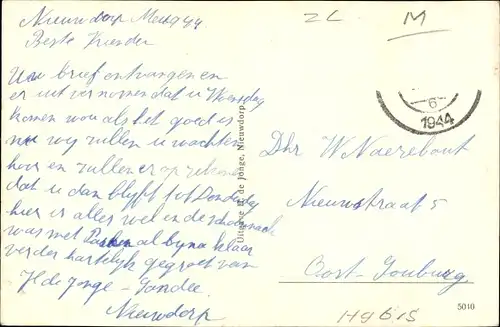 Nieuwdorp Mei 1944
Beste Vrienden
Uw brief ontvangen en
er uit vernomen dat u Woensdag
komen wou als het goed is
nu wy zullen u wachten
hoor en zullen er op rekenen
dat u dan blyft tot Donderdag
hier is alles wel en de schoonmaak
was met Paschen al byna klaar
verder hartelyk gegroet van
H de Jonge - Sandee
Nieuwdorp
Uitgave H. de Jonge, Nieuwdorp
ZL
M
6
1944
Dhr W Naerebout
Nieuwstraat 5
Oost-Souburg
5010
Hg 615